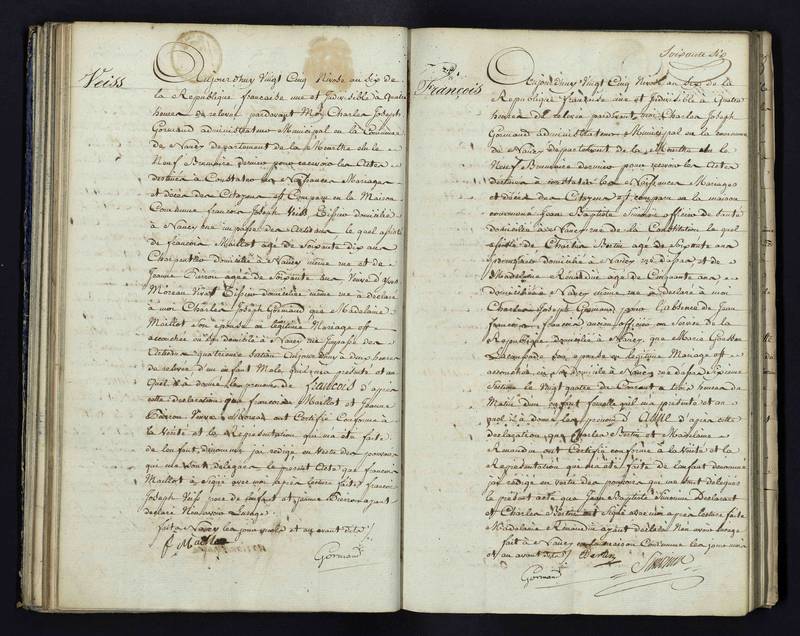 Veiss
Aujourd'huy Vingt Cinq Nivose an Six de
la Republique francaise une et Indivisible à Quatre
heures de relevé pardevant Moy Charles Joseph
Gormand administrateur Municipal de la Commune
de Nancy departement de la Meurthe elu le
Neuf Brumaire dernier pour recevoir les Actes
destinés à Constater les Naissances Mariages
et décès des Citoyens est Comparu en la Maison
Commune francois Joseph Veiss domicilié
à Nancy rue impasse des Artisans le quel assisté
de francois Maillot age de Soixante dix ans
Charpentier domicilié à Nancy même rue et de
Jeanne agée de Soixante ans Veuve d'Yves
Moreau domiciliée même rue a déclaré
à moi Charles Joseph Gormand que Madelaine
Maillot Son épouse en légitime Mariage est
accouchée en Son domicile à Nancy rue Impasse des
Artisans aujourd'huy à deux heures
de relevée d'un enfant Male qu'il m'a présenté et au
Quel il a donné le prenom de francois d'après
cette déclaration que francois Maillot et Jeanne
Veuve Moreau ont Certifié Conforme à
la Vérité et la Représentation qui m'a été faite
de l'enfant denommé j'ai rédigé en Vertu des pouvoirs
qui me sont délégués le présent Acte que francois
Maillot a Signé avec moi après lecture faite francois
Joseph Veiss pere de l'enfant et Jeanne ayant
déclaré
fait à Nancy les jour mois et an avant dits
f Maillot
Gormand
Soixante Six
François
Aujourd'huy Vingt Cinq Nivose an Six de la
Republique française une et Indivisible à Quatre
heures de relevée pardevant moi Charles Joseph
Gormand administrateur Municipal de la Commune
de Nancy département de la Meurthe elu le
Neuf Brumaire dernier pour recevoir les Actes
destinés à constater les Naissances Mariages
et décès des Citoyens est comparu en la maison
commune Jean Baptiste Simonin officier de Santé
domicilié à Nancy rue de la Constitution le quel
assisté de Charles Bertin age de Soixante ans
domicilié à Nancy et de
Madelaine Renaudin age de Cinquante ans
domiciliée à Nancy même rue a déclaré à moi
Charles Joseph Gormand pour l'absence de Jean
francois francois ancien officier au Service de la
Republique domicilié à Nancy, que Marie
Son épouse en légitime Mariage est
accouchée en Son domicile à Nancy
le Vingt quatre du Courant à trois heures du
Matin d'un enfant femelle qu'il m'a présenté et au
quel il a donné les prenoms d' après cette
declaration que Charles Bertin et Madelaine
Renaudin ont Certifié conforme à la Vérité et la
Représentation qui m'a été faite de l'enfant denommé
j'ai rédigé en vertu des pouvoirs qui me sont delegués
le présent acte que Jean Baptiste Simonin Declarant
et Charles Bertin ont Signé avec moi après lecture faite
Madelaine Renaudin ayant déclaré
fait à Nancy en la maison Commune les jour mois
et an avant dits Bertin
Gormand
Simonin